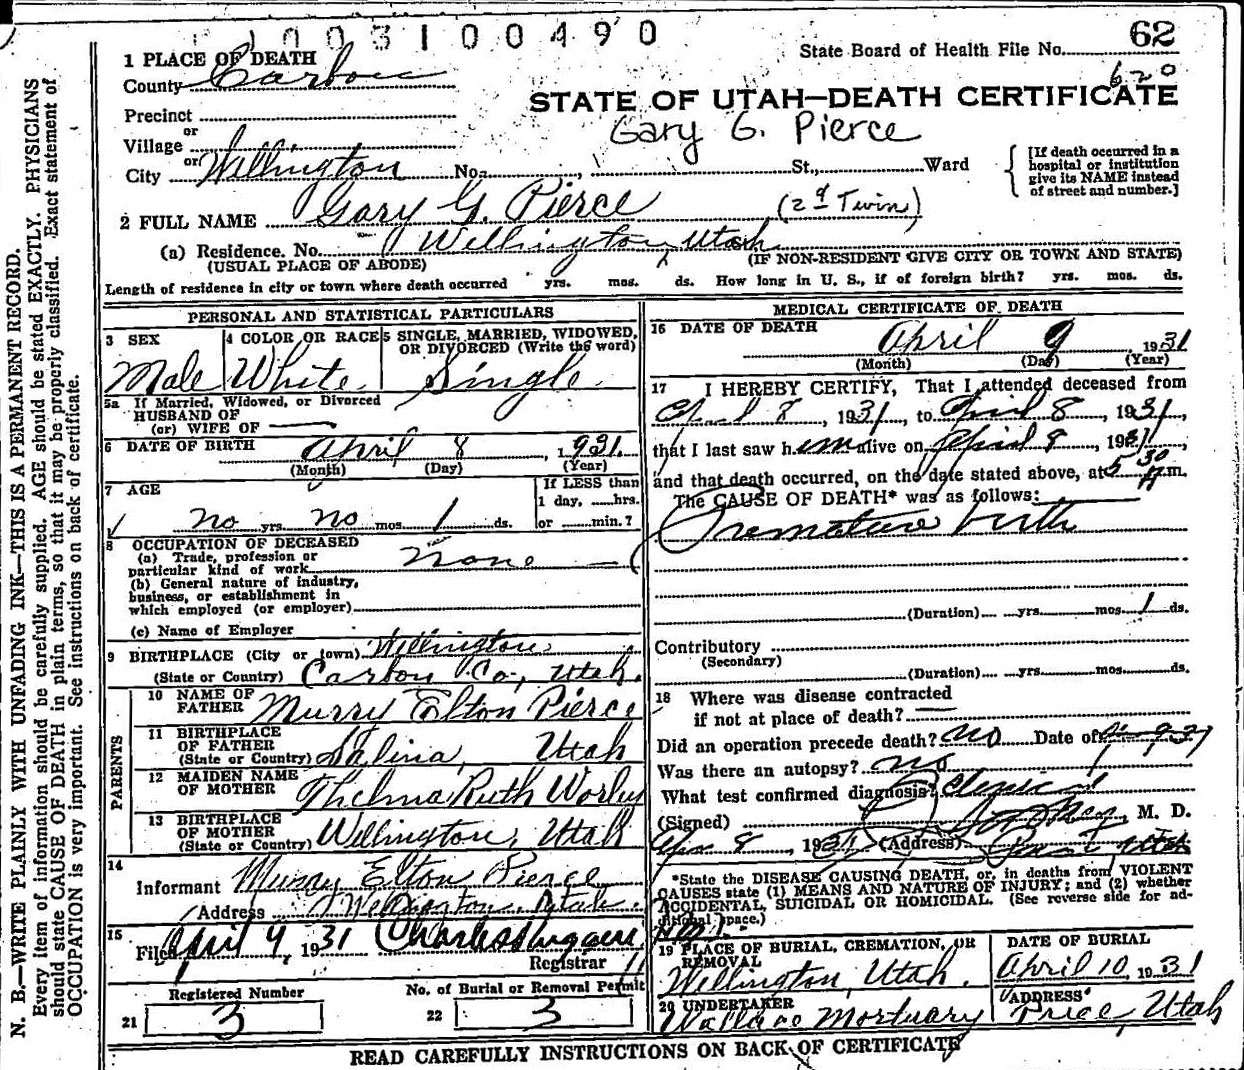 1003100490
State Board of Health File No. 62
620
1 PLACE OF DEATH
County Carbon
STATE OF UTAH—DEATH CERTIFICATE
Precinct
Gary G. Pierce
or
Village
or
City Wellington No. , St., Ward
[If death occurred in a hospital or institution give its NAME instead of street and number.]
2 FULL NAME Gary G. Pierce (2d Twin)
(a) Residence. No. Wellington, Utah
(USUAL PLACE OF ABODE) (IF NON-RESIDENT GIVE CITY OR TOWN AND STATE)
Length of residence in city or town where death occurred yrs. mos. ds. How long in U. S., if of foreign birth? yrs. mos. ds.
PERSONAL AND STATISTICAL PARTICULARS
3 SEX 4 COLOR OR RACE 5 SINGLE, MARRIED, WIDOWED,
OR DIVORCED (Write the word)
Male White Single
5a If Married, Widowed, or Divorced
HUSBAND OF
(or) WIFE OF
6 DATE OF BIRTH April 8, 1931
(Month) (Day) (Year)
7 AGE If LESS than
1 day, hrs.
no yrs. no mos. 1 ds. or min.?
8 OCCUPATION OF DECEASED
(a) Trade, profession or
particular kind of work None
(b) General nature of industry,
business, or establishment in
which employed (or employer)
(c) Name of Employer
9 BIRTHPLACE (City or town) Wellington
(State or Country) Carbon Co., Utah.
PARENTS
10 NAME OF
FATHER Murry Elton Pierce
11 BIRTHPLACE
OF FATHER
(State or Country) Salina, Utah
12 MAIDEN NAME
OF MOTHER Thelma Ruth Worley
13 BIRTHPLACE
OF MOTHER
(State or Country) Wellington, Utah
14
Informant Murry Elton Pierce
Address Wellington, Utah.
15
Filed April 9, 1931 Charles
Registrar
Registered Number No. of Burial or Removal Permit
21 3 22 3
MEDICAL CERTIFICATE OF DEATH
16 DATE OF DEATH
April 9, 1931
(Month) (Day) (Year)
17 I HEREBY CERTIFY, That I attended deceased from
April 8, 1931, to April 8, 1931,
that I last saw him alive on April 8, 1931,
and that death occurred, on the date stated above, at 5 30 A m.
The CAUSE OF DEATH* was as follows:
Premature birth
(Duration) yrs. mos. 1 ds.
Contributory
(Secondary)
(Duration) yrs. mos. ds.
18 Where was disease contracted
if not at place of death?
Did an operation precede death? no Date of
Was there an autopsy? no
What test confirmed diagnosis? Clinical
(Signed) , M. D.
Apr 8, 1931 (Address) Price Utah
*State the DISEASE CAUSING DEATH, or, in deaths from VIOLENT
CAUSES state (1) MEANS AND NATURE OF INJURY; and (2) whether
ACCIDENTAL, SUICIDAL OR HOMICIDAL. (See reverse side for ad-
ditional space.)
19 PLACE OF BURIAL, CREMATION, OR
REMOVAL
Wellington, Utah.
DATE OF BURIAL
April 10, 1931
20 UNDERTAKER
Wallace Mortuary
ADDRESS
Price, Utah
READ CAREFULLY INSTRUCTIONS ON BACK OF CERTIFICATE
N. B.—WRITE PLAINLY WITH UNFADING INK—THIS IS A PERMANENT RECORD.
Every item of information should be carefully supplied. AGE should be stated EXACTLY. PHYSICIANS
should state CAUSE OF DEATH in plain terms, so that it may be properly classified. Exact statement of
OCCUPATION is very important. See instructions on back of certificate.